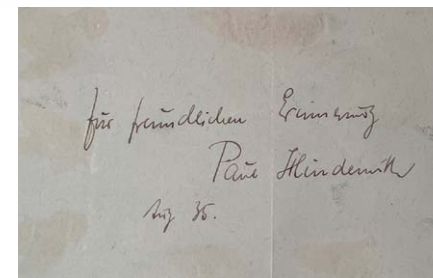 für freundlichen Erinnerung
Paul Hindemith
Aug 35.